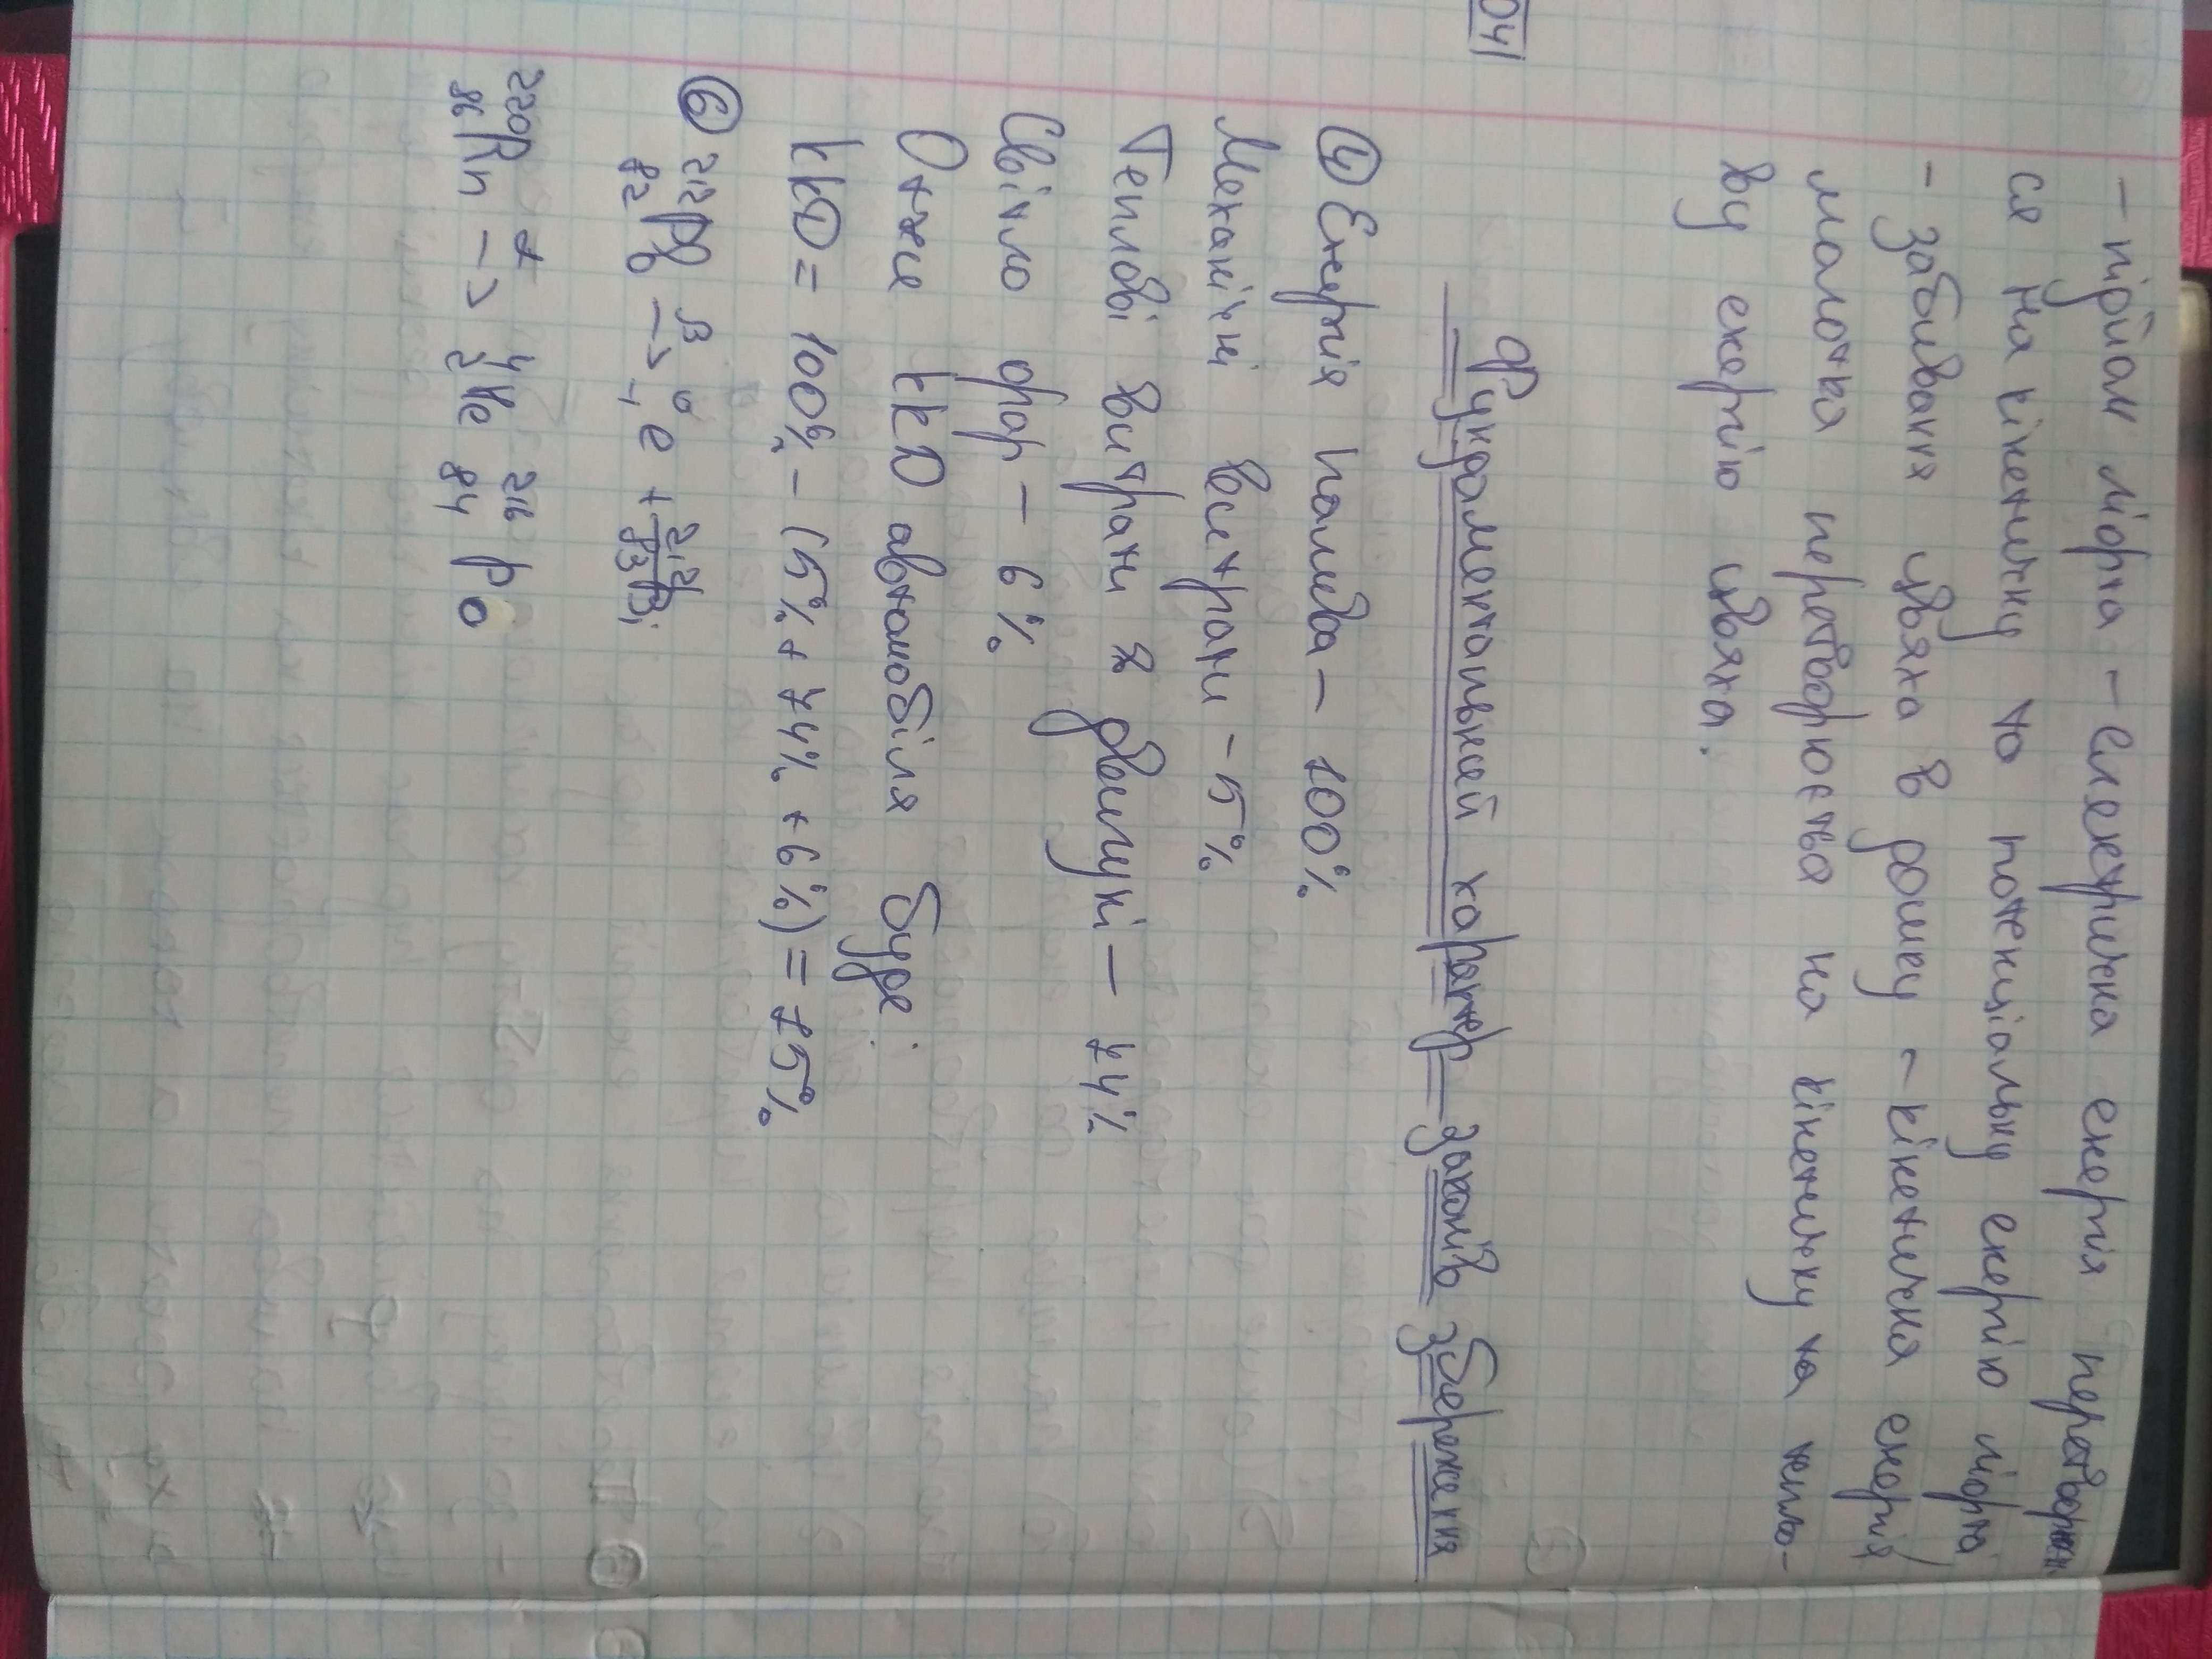 - підйом ліфта - електрична енергія перетворюєть
ся на кінетичну та потенціальну енергію ліфта
- забивання цвяха в дошку - кінетична енергія
молотка перетворюється на кінетичну та тепло-
ву енергію цвяха.
04
Фундаментальний характер законів збереження
④ Енергія палива - 100%
Механічні витрати - 5%
Теплові витрати з двигуні - 74%
Світло фар - 6%
Отже ККД автомобіля буде:
ККД = 100% - (5% + 74% + 6%) = 15%
⑥ ²¹²₈₂Pb β→ ⁰₋₁e + ²¹²₈₃Bi
²²⁰₈₆Rn α→ ⁴₂He ²¹⁶₈₄Po